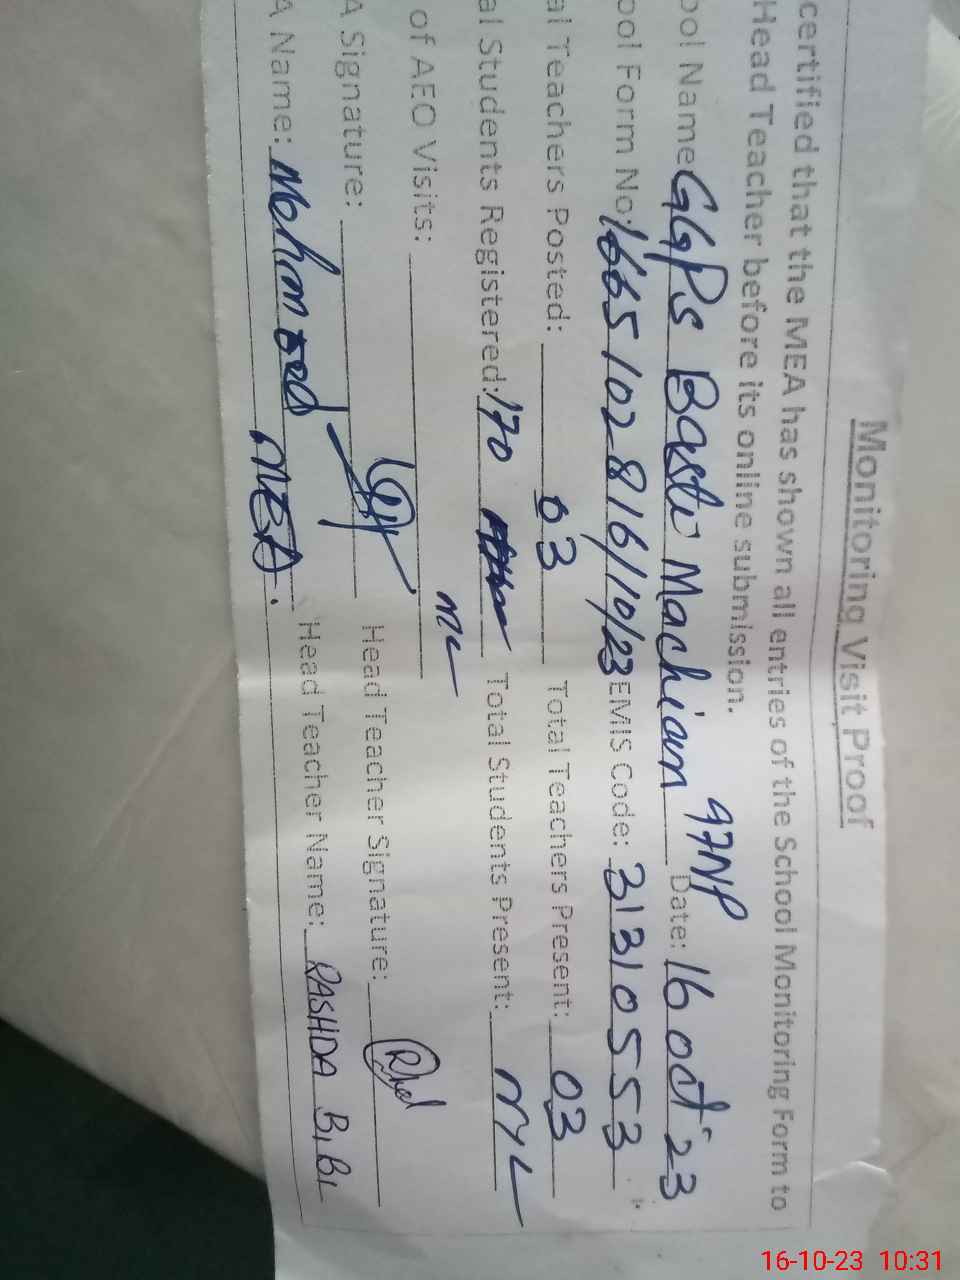 Monitoring Visit Proof
certified that the MEA has shown all entries of the School Monitoring Form to
Head Teacher before its online submission.
ool Name GGPS Basti Machian 97NP Date: 16 oct 23
ool Form No: 1665102816/10/23 EMIS Code: 31310553
al Teachers Posted: 03 Total Teachers Present: 03
al Students Registered: 170 Total Students Present:
of AEO Visits:
A Signature: Head Teacher Signature:
A Name: Mehmood MEA. Head Teacher Name: RASHDA BiBi
16-10-23 10:31